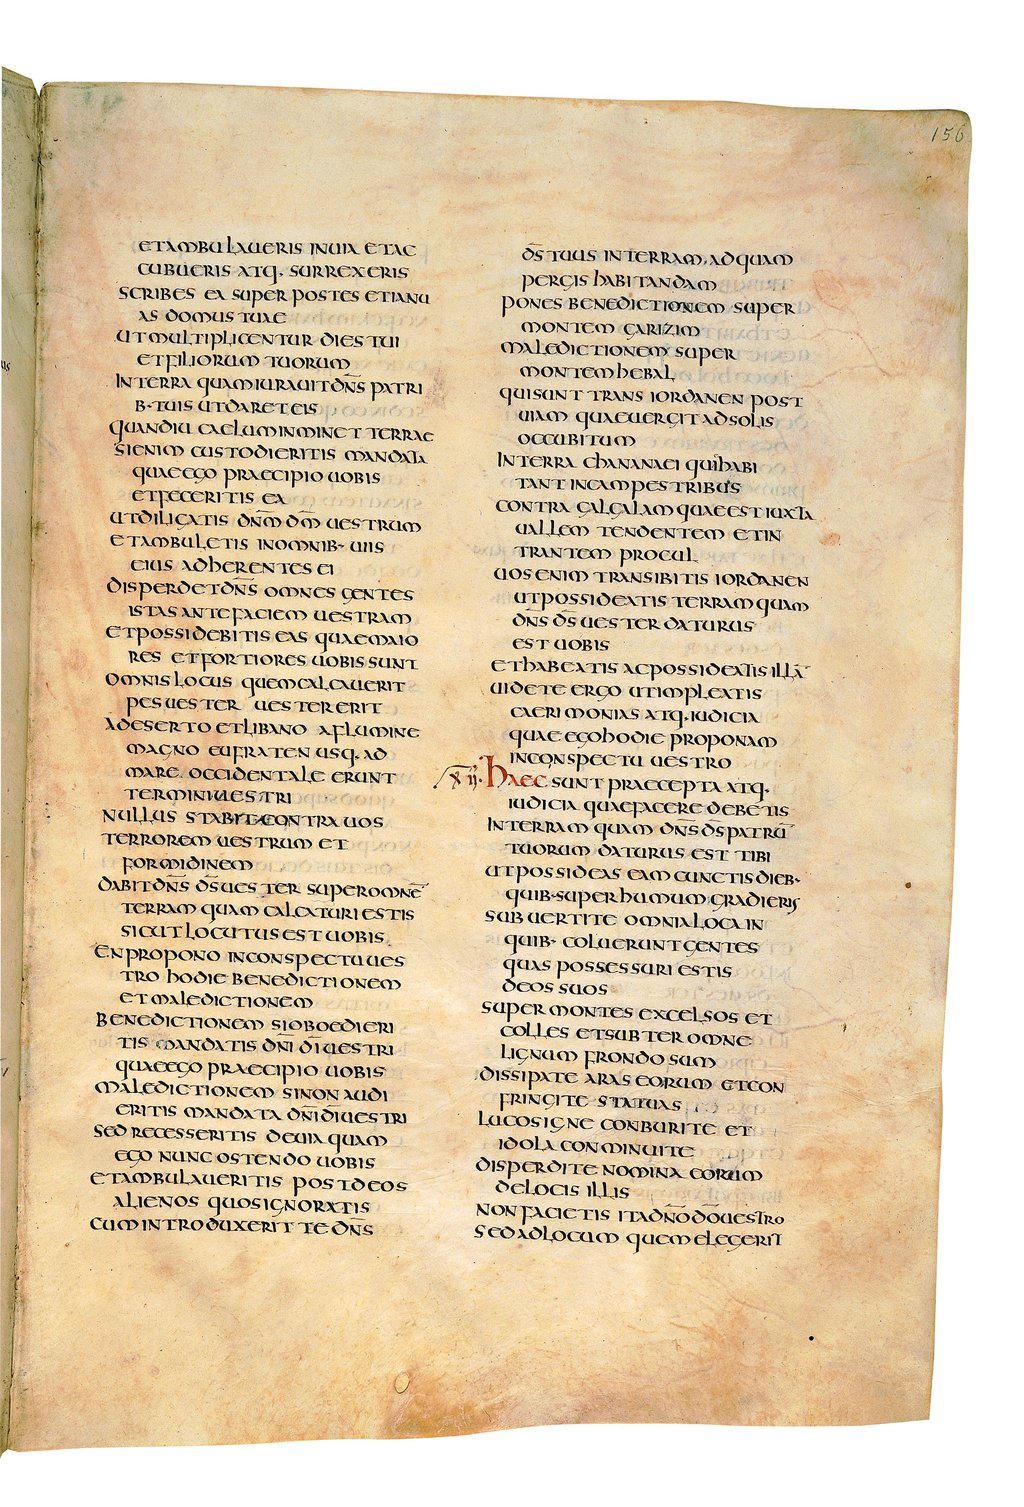 156
ET AMBULAUERIS IN UIA ET AC
CUBUERIS ATQ. SURREXERIS
SCRIBES EA SUPER POSTES ET IANU
AS DOMUS TUAE
UT MULTIPLICENTUR DIES TUI
ET FILIORUM TUORUM
IN TERRA QUAM IURAUIT DN̅S PATRI
B· TUIS UT DARET EIS
QUANDIU CAELUM INMINET TERRAE
SI ENIM CUSTODIERITIS MANDATA
QUAE EGO PRAECIPIO UOBIS
ET FECERITIS EA
UT DILIGATIS DN̅M DM̅ UESTRUM
ET AMBULETIS IN OMNIB· UIIS
EIUS ADHERENTES EI
DISPERDET DN̅S OMNES GENTES
ISTAS ANTE FACIEM UESTRAM
ET POSSIDEBITIS EAS QUAE MAIO
RES ET FORTIORES UOBIS SUNT
OMNIS LOCUS QUEM CALCAUERIT
PES UESTER UESTER ERIT
A DESERTO ET LIBANO A FLUMINE
MAGNO EUFRATEN USQ. AD
MARE OCCIDENTALE ERUNT
TERMINI UESTRI
NULLUS STABIT CONTRA UOS
TERROREM UESTRUM ET
FORMIDINEM
DABIT DN̅S DS̅ UESTER SUPER OMNE̅
TERRAM QUAM CALCATURI ESTIS
SICUT LOCUTUS EST UOBIS
EN PROPONO IN CONSPECTU UES
TRO HODIE BENEDICTIONEM
ET MALEDICTIONEM
BENEDICTIONEM SI OBOEDIERI
TIS MANDATIS DN̅I DI̅ UESTRI
QUAE EGO PRAECIPIO UOBIS
MALEDICTIONEM SI NON AUDI
ERITIS MANDATA DN̅I DI̅ UESTRI
SED RECESSERITIS DE UIA QUAM
EGO NUNC OSTENDO UOBIS
ET AMBULAUERITIS POST DEOS
ALIENOS QUOS IGNORATIS
CUM INTRODUXERIT TE DN̅S
DS̅ TUUS IN TERRAM, AD QUAM
PERGIS HABITANDAM
PONES BENEDICTIONEM SUPER
MONTEM GARIZIM
MALEDICTIONEM SUPER
MONTEM HEBAL
QUI SUNT TRANS IORDANEN POST
UIAM QUAE UERGIT AD SOLIS
OCCUBITUM
IN TERRA CHANANAEI QUI HABI
TANT IN CAMPESTRIBUS
CONTRA GALGALAM QUAE EST IUXTA
UALLEM TENDENTEM ET IN
TRANTEM PROCUL
UOS ENIM TRANSIBITIS IORDANEN
UT POSSIDEATIS TERRAM QUAM
DN̅S DS̅ UESTER DATURUS
EST UOBIS
ET HABEATIS AC POSSIDEATIS ILLA̅
UIDETE ERGO UT IMPLEATIS
CAERIMONIAS ATQ. IUDICIA
QUAE EGO HODIE PROPONAM
IN CONSPECTU UESTRO
XII· HAEC SUNT PRAECEPTA ATQ.
IUDICIA QUAE FACERE DEBETIS
IN TERRAM QUAM DN̅S DS̅ PATRU̅
TUORUM DATURUS EST TIBI
UT POSSIDEAS EAM CUNCTIS DIEB·
QUIB· SUPER HUMUM GRADIERIS
SUBUERTITE OMNIA LOCA IN
QUIB· COLUERUNT GENTES
QUAS POSSESSURI ESTIS
DEOS SUOS
SUPER MONTES EXCELSOS ET
COLLES ET SUBTER OMNE
LIGNUM FRONDOSUM
DISSIPATE ARAS EORUM ET CON
FRINGITE STATUAS
LUCOS IGNE CONBURITE ET
IDOLA CONMINUITE
DISPERDITE NOMINA EORUM
DE LOCIS ILLIS
NON FACIETIS ITA DN̅O DO̅ UESTRO
SED AD LOCUM QUEM ELEGERIT